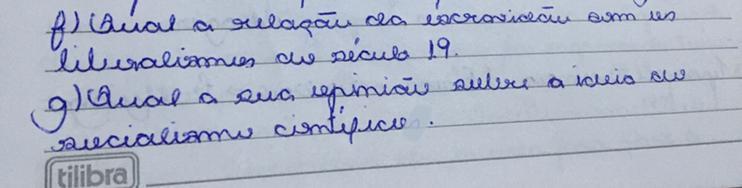 f) Qual a relação da escravidão com os
liberalismos do século 19.
g) Qual a sua opinião sobre a ideia de
socialismo científico.
tilibra